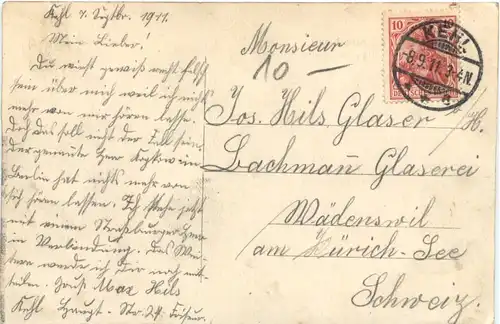 Kehl 7. Septbr. 1911.
Mein Lieber!
Du wirst gewiss recht
sein über mich weil ich nichts
mehr von mir hören lasse.
Doch das soll nicht der Fall sein.
der gemüte Herr in
Berlin hat nichts mehr von
sich hören lassen. Ich stehe jetzt
mit einem Strassburger Herrn
in Verbindung. Das Wei-
tere werde ich Dir noch mit-
teilen. Gruss Max Hils
Kehl Haupt-Str. 24. Friseur.
Monsieur
10 —
Jos. Hils Glaser
Bachmañ Glaserei
Wädenswil
am Zürich-See
Schweiz.
10
KEHL
8.9.11. 3-4N.